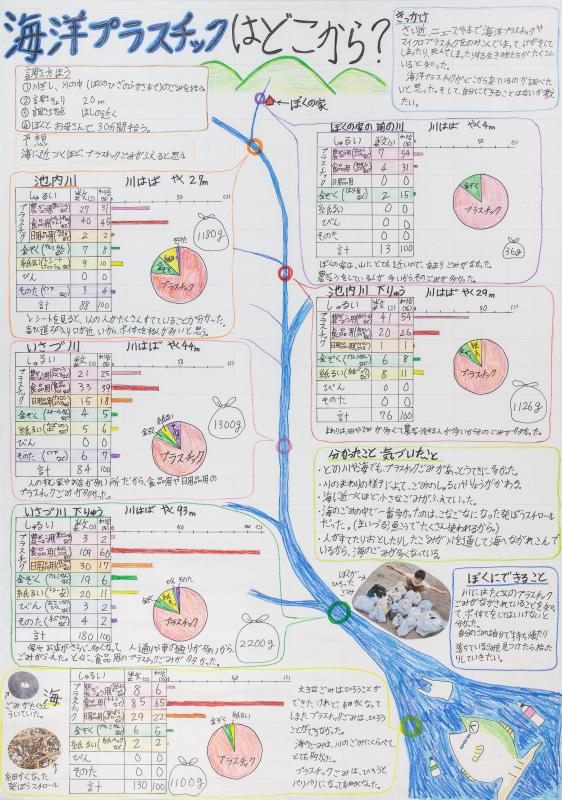 海洋プラスチックはどこから?
きっかけ
さい近ニュースや本で海洋プラスチックや
マイクロプラスチックをのみこんでしまって、けがをして
しまったり、死んでしまったりする生き物たちがたくさん
いると知った。
海洋プラスチックがどこから来ているのか調べたい
と思った。そして、自分にできることはないか考え
たい。
調べ方
②調べるきょり 20m
④ぼくとお母さんで、30分間拾う。
予想
海に近づくほど、プラスチックごみがふえると思う
ぼくの家
ぼくの家の前の川 川はば やく4m
しゅるい 数(コ) わり合(%)
プラスチック
農ぎょう用 7 54
食品用 4 31
日用品用 0 0
金ぞく 2 15
紙るい 0 0
びん 0 0
そのた 0 0
計 13 100
金ぞく
プラスチック
36g
ぼくの家は、山にとても近いので、あまりごみがなかった。
池内川 川はば やく27m
しゅるい 数(コ) わり合(%)
プラスチック
農ぎょう用 27 31
食品用 40 45
日用品用 2 2
金ぞく 7 8
紙るい 9 10
びん 0 0
そのた 3 4
計 88 100
プラスチック
1180g
池内川 下りゅう 川はば やく29m
しゅるい 数(コ) わり合(%)
プラスチック
農ぎょう用 41 54
食品用 20 26
日用品用 1 1
金ぞく 6 8
紙るい 8 11
びん 0 0
そのた 0 0
計 76 100
プラスチック
1126g
いさづ川 川はば やく44m
しゅるい 数(コ) わり合(%)
プラスチック
農ぎょう用 21 25
食品用 33 39
日用品用 15 18
金ぞく 4 5
紙るい 5 6
びん 0 0
そのた 6 7
計 84 100
プラスチック
1300g
人の住む家やお店が多い所だから、食品用や日用品用の
プラスチックごみが多かった。
分かったこと・気づいたこと
・どの川や海でも、プラスチックごみがあっとうてきに多かった。
・川のまわりの様子によって、ごみのしゅるいやりょうがかわる。
・海に近づくほど小さなごみがふえていた。
・海のごみの中で一番多かったのは、こなごなになった発ぽうスチロール
だった。(まいづるは魚つりでたくさん使われるから)
・人がすてたりおとしたりしたごみが川を通して海へながれこんで
いるから、海のごみが多くなっている
いさづ川 下りゅう 川はば やく93m
しゅるい 数(コ) わり合(%)
プラスチック
農ぎょう用 3 2
食品用 109 60
日用品用 30 17
金ぞく 19 6
紙るい 20 11
びん 3 2
そのた 4 2
計 180 100
プラスチック
2200g
ぼくが
ひろった
ごみ
ぼくにできること
川にはたくさんのプラスチック
ごみがながされていることを知って
ポイすてをしてはいけないと
分かった。
自分のごみは自分で持ち帰ったり
落ちているごみを見つけたら拾った
りしていきたい。
海
ごみがたくさん
ういていた。
細かくなった
発ぽうスチロール
しゅるい 数(コ) わり合(%)
プラスチック
農ぎょう用 8 6
食品用 85 65
日用品用 29 22
金ぞく 6 5
紙るい 2 2
びん 0 0
そのた 0 0
計 130 100
プラスチック
1100g
大きなごみはひろうことが
できた。けれど、細かくなって
しまったプラスチックごみは、ひろう
ことができなかった。
海のごみは、川のごみにくらべて、
とても多かった。
プラスチックごみは、ひろうと
バリバリになって細かくなった。